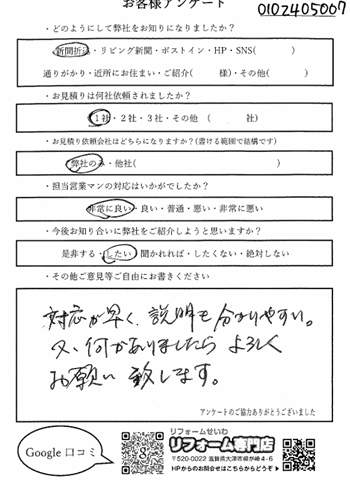 お客様アンケート
0102405007
・どのようにして弊社をお知りになりましたか？
新聞折込・リビング新聞・ポストイン・HP・SNS(　　　)
通りがかり・近所にお住まい・ご紹介(　　様)・その他(　　　)
・お見積りは何社依頼されましたか？
1社・2社・3社・その他 (　　　社)
・お見積り依頼会社はどちらになりますか？(書ける範囲で結構です)
弊社のみ・他社(　　　)
・担当営業マンの対応はいかがでしたか？
非常に良い・良い・普通・悪い・非常に悪い
・今後お知り合いに弊社をご紹介しようと思いますか？
是非する・したい・聞かれれば・したくない・絶対しない
・その他ご意見等ご自由にお書きください
対応が早く、説明も分かりやすい。
又、何かありましたら よろしく
お願い致します。
アンケートのご協力ありがとうございました
Google 口コミ
リフォームせいわ
リフォーム専門店
〒520-0022 滋賀県大津市柳が崎4-6
HPからのお問合せはこちらからどうぞ